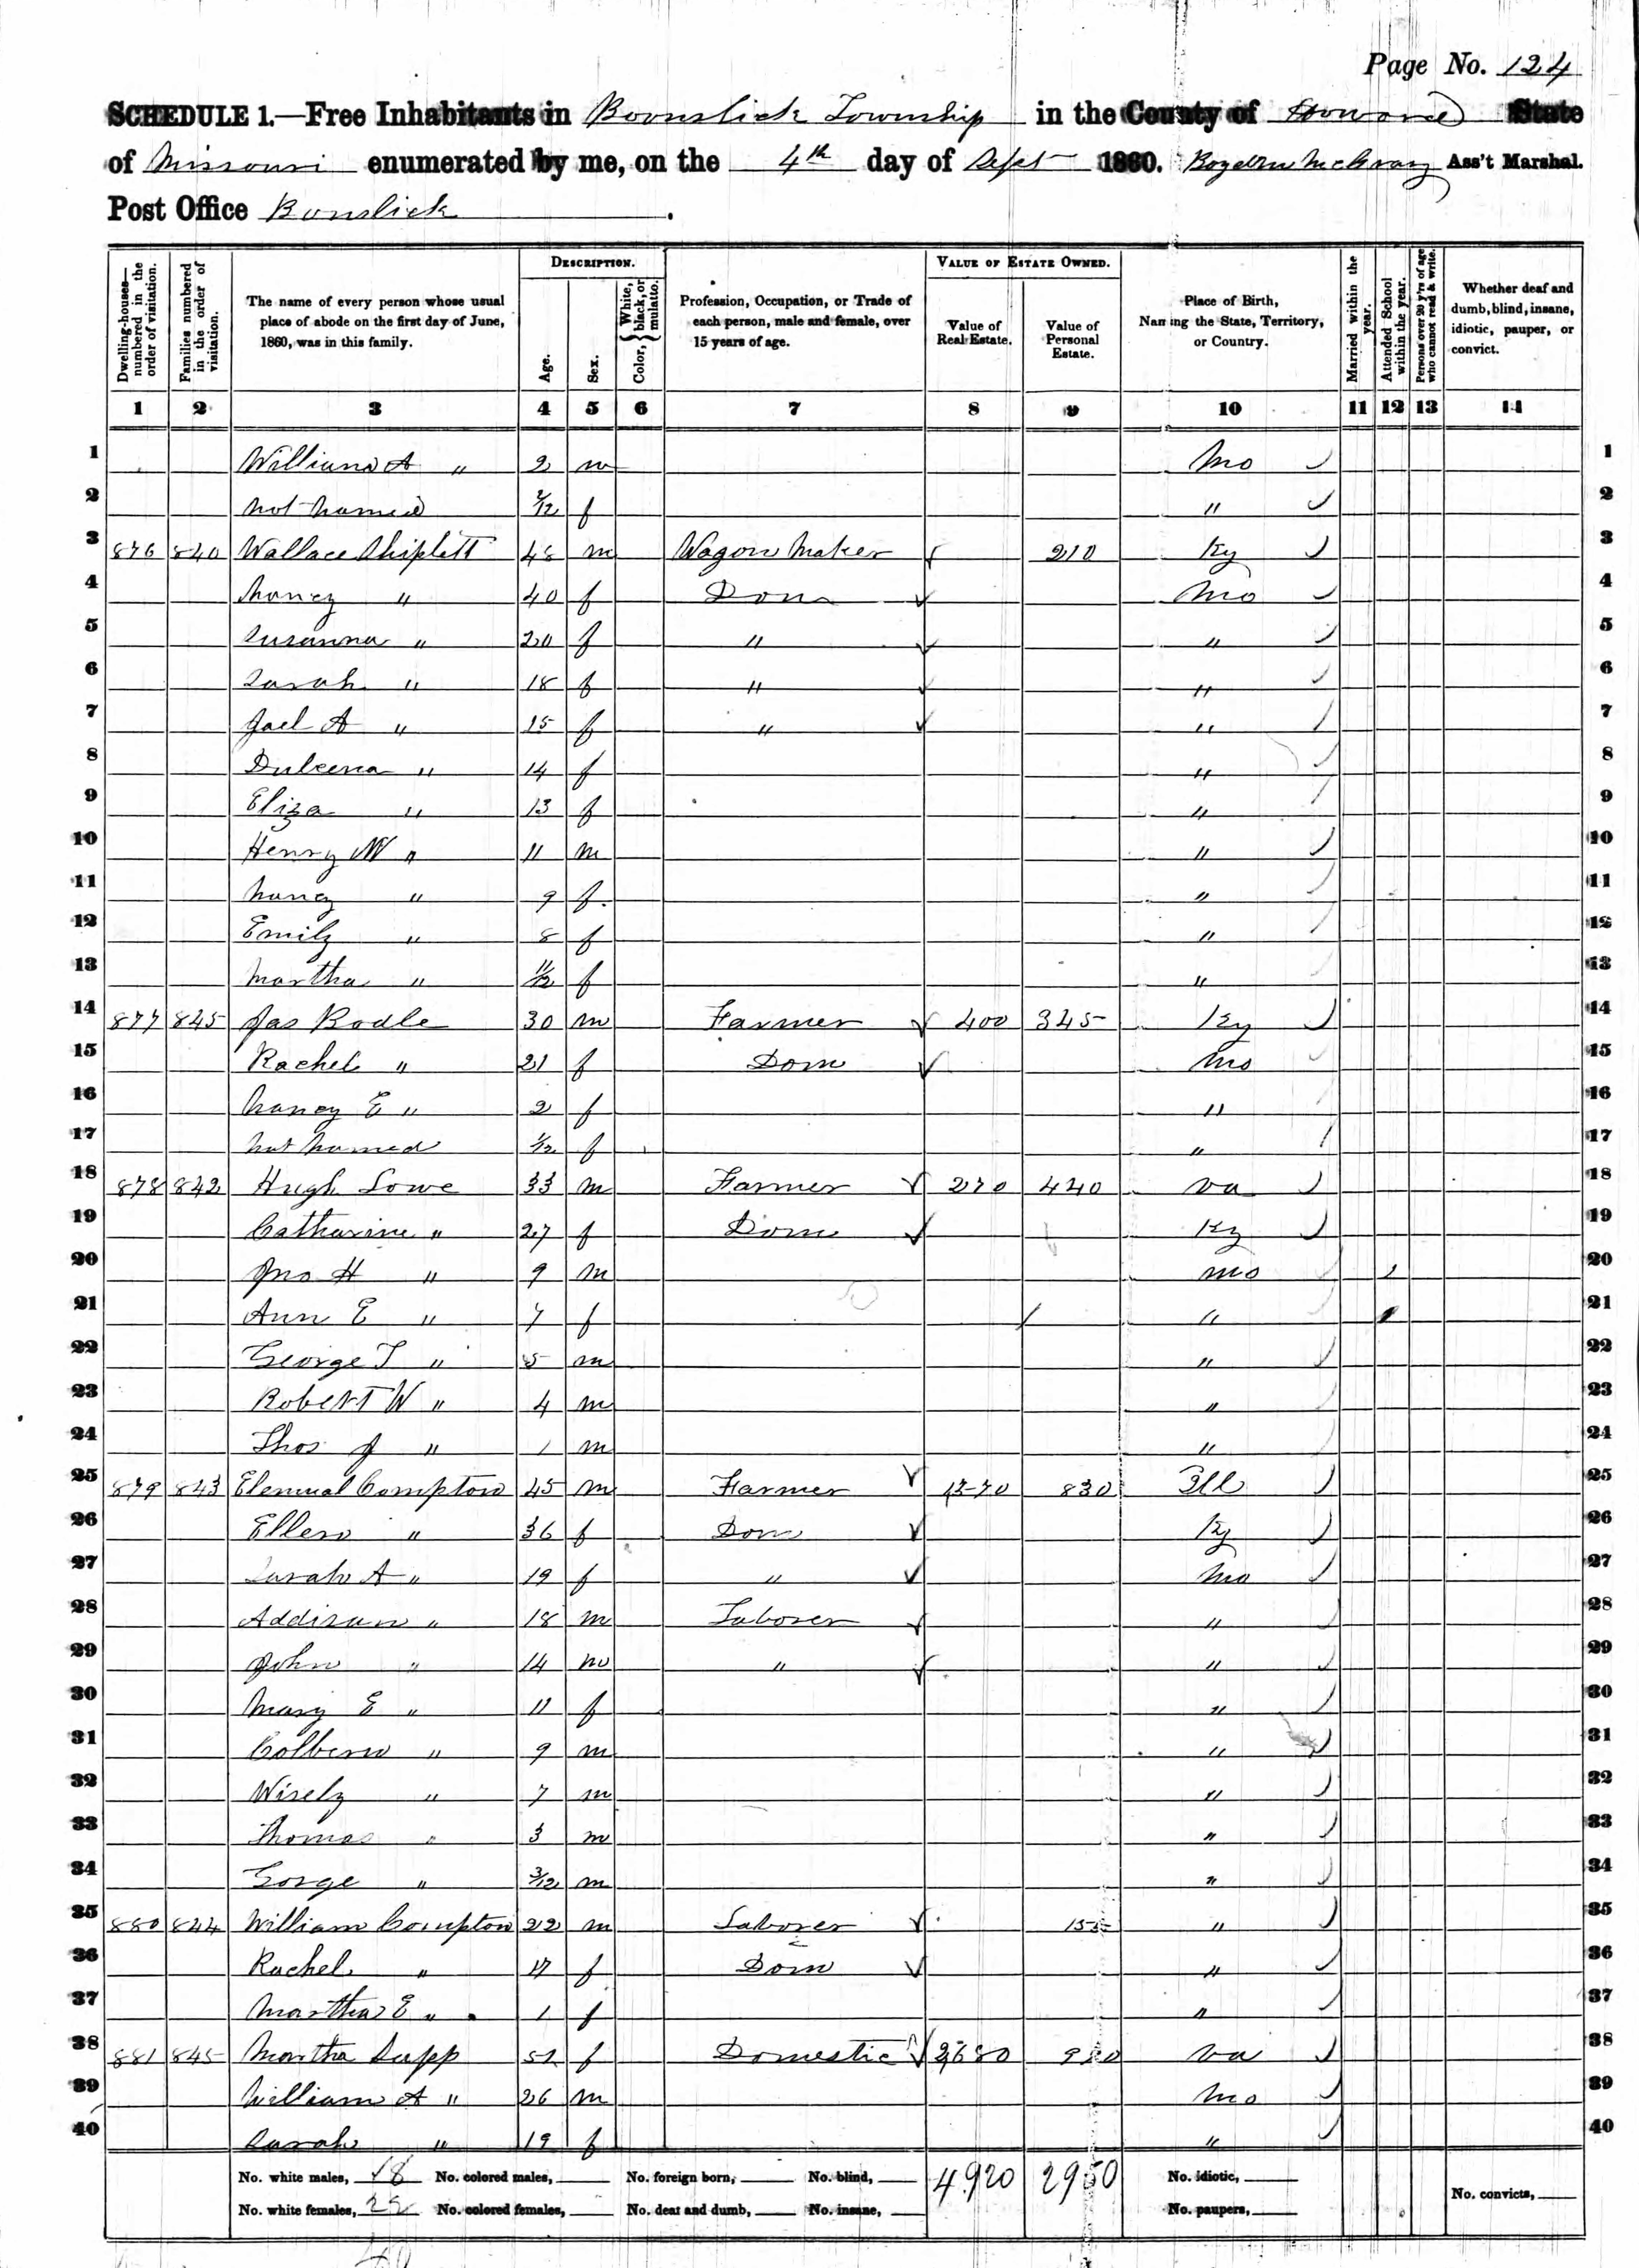 Page No. 124
SCHEDULE 1.—Free Inhabitants in Boonslick Township in the County of Howard State
of Missouri enumerated by me, on the 4th day of Sept 1860. Ass't Marshal.
Post Office Bonslick.
Dwelling-houses—numbered in the order of visitation.
Families numbered in the order of visitation.
The name of every person whose usual place of abode on the first day of June, 1860, was in this family.
DESCRIPTION.
Age.
Sex.
Color, { White, black, or mulatto.
Profession, Occupation, or Trade of each person, male and female, over 15 years of age.
VALUE OF ESTATE OWNED.
Value of Real Estate.
Value of Personal Estate.
Place of Birth, Naming the State, Territory, or Country.
Married within the year.
Attended School within the year.
Persons over 20 y'rs of age who cannot read & write.
Whether deaf and dumb, blind, insane, idiotic, pauper, or convict.
1 2 3 4 5 6 7 8 9 10 11 12 13 14
1 William A " 2 m Mo 1
2 not named 2/12 f " 2
3 876 840 Wallace Shiplett 48 m Wagon Maker 210 Ky 3
4 Nancy " 40 f Dom Mo 4
5 Susanna " 20 f " " 5
6 Sarah " 18 f " " 6
7 Jael A " 15 f " " 7
8 Dulcena " 14 f " 8
9 Eliza " 13 f " 9
10 Henry W " 11 m " 10
11 Nancy " 9 f " 11
12 Emily " 8 f " 12
13 Martha " 11/12 f " 13
14 877 845 Jas Bodle 30 m Farmer 400 345 Ky 14
15 Rachel " 21 f Dom Mo 15
16 Nancy E " 2 f " 16
17 not named 1/12 f " 17
18 878 842 Hugh Lowe 33 m Farmer 270 440 Va 18
19 Catharine " 27 f Dom Ky 19
20 Jno H " 9 m Mo 1 20
21 Ann E " 7 f " 1 21
22 George T " 5 m " 22
23 Robert W " 4 m " 23
24 Thos J " 1 m " 24
25 879 843 Elemual Compton 45 m Farmer 830 Ill 25
26 Ellen " 36 f Dom Ky 26
27 Sarah A " 19 f " Mo 27
28 Addison " 18 m Laborer " 28
29 John " 14 m " " 29
30 Mary E " 11 f " 30
31 Colbern " 9 m " 31
32 Wisely " 7 m " 32
33 Thomas " 3 m " 33
34 Gorge " 3/12 m " 34
35 880 844 William Compton 22 m Laborer 155 " 35
36 Rachel " 17 f Dom " 36
37 Martha E " 1 f " 37
38 881 845 Martha Supp 52 f Domestic 2680 Va 38
39 William A " 26 m Mo 39
40 Sarah " 19 f " 40
No. white males, 18 No. colored males, No. foreign born, No. blind, 4920 2950 No. idiotic,
No. white females, 22 No. colored females, No. deaf and dumb, No. insane, No. paupers, No. convicts,
40